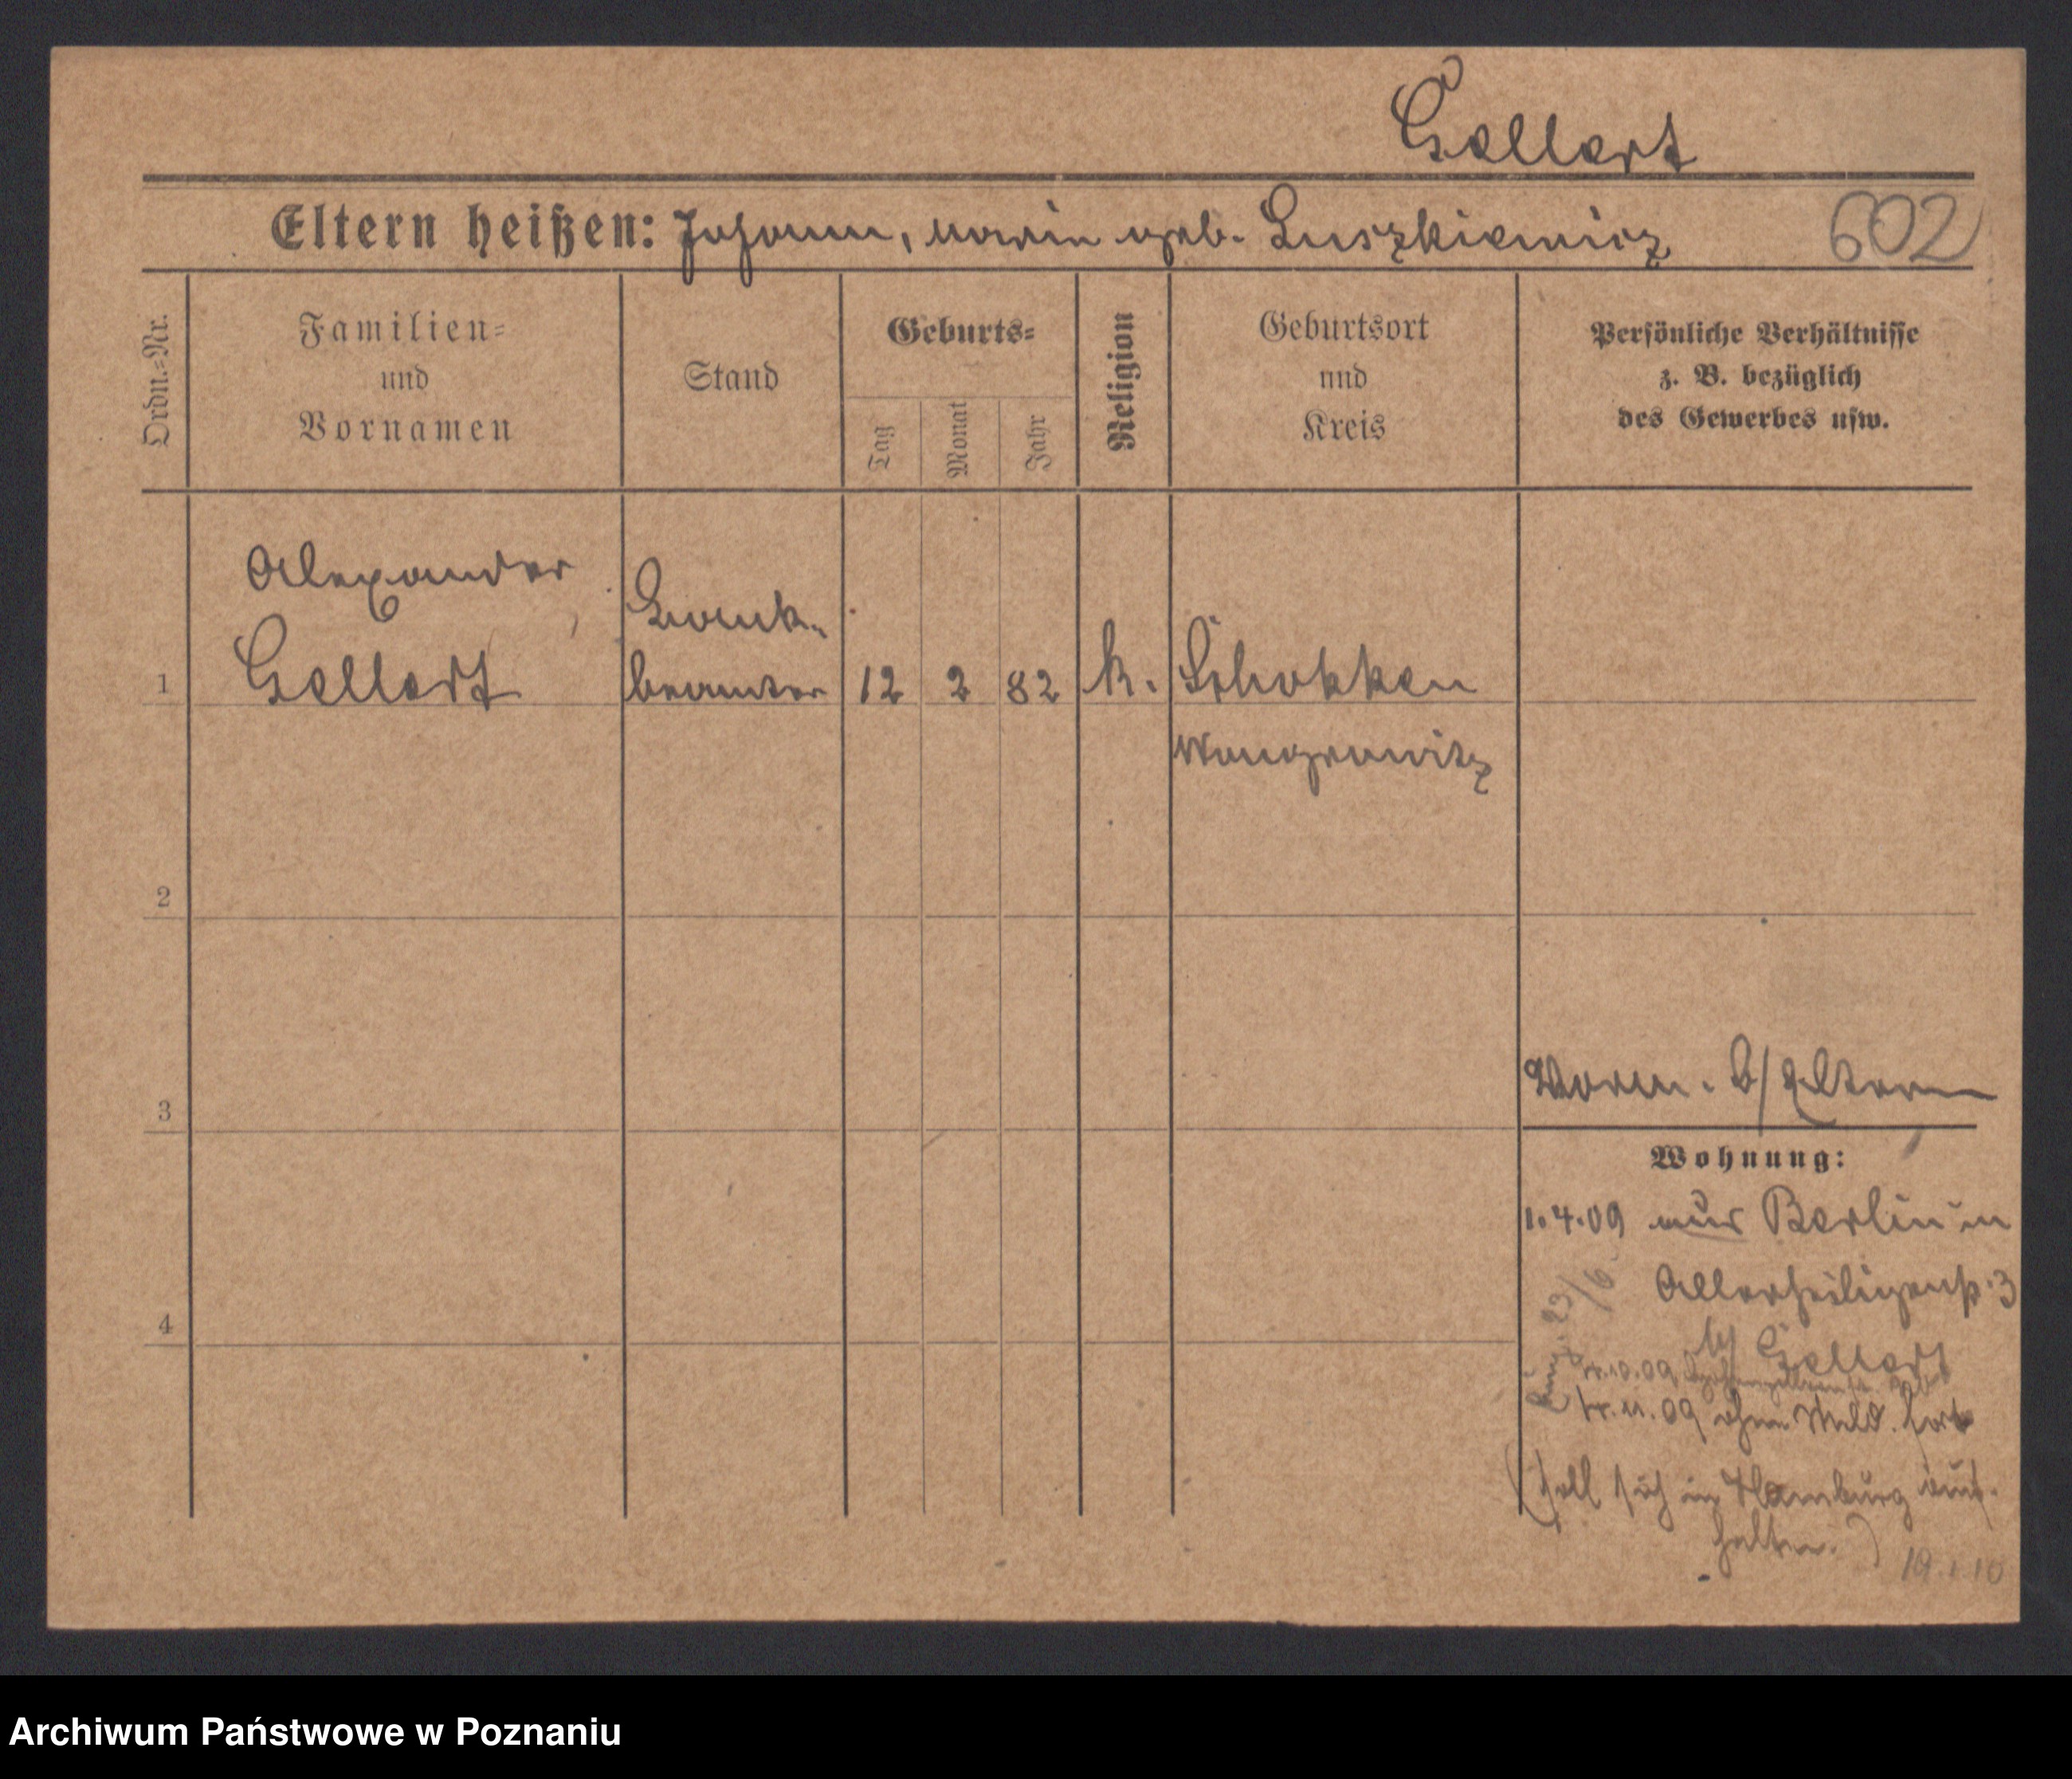 Gellert
Eltern heißen: Johann, Marie geb. Luszkiewicz 602
Ordn.-Nr.
Familien-
und
Vornamen
Stand
Geburts-
Tag
Monat
Jahr
Religion
Geburtsort
und
Kreis
Persönliche Verhältnisse
z. B. bezüglich
des Gewerbes usw.
Alexander
Gellert
Bank-
beamter
1 12 2 82 k. Schokken
Wongrowitz
2
3
Vorm. b/Eltern
Wohnung:
1.4.09 aus Berlin in
Allerheiligenstr. 3
b/ Gellert
23/6
4
11.09 ohne Meld. fort
(soll sich in Hamburg auf-
halten.)
19.1.10
Archiwum Państwowe w Poznaniu